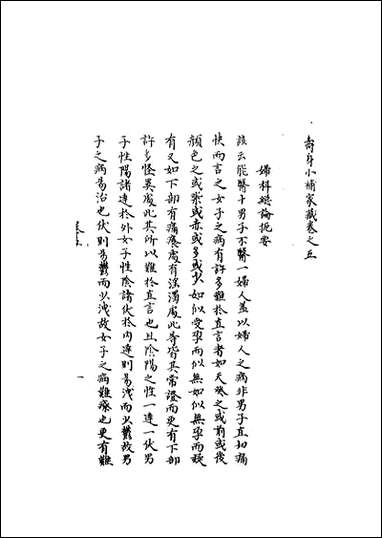 壽身小補家藏卷之五
婦科總論扼要
諺云能醫十男子不醫一婦人蓋以婦人之病非男子直切痛
快而言之女子之病有許多難於直言者如天癸之或前或後
顏色之或紫或赤或多或少如似受孕而似無如似無孕而疑
有又如下部有痛癢處有淫濁處此等皆其常證而更有下部
許多怪異處此其所以難於直言也且陰陽之性一達一伏男
子性陽諸達於外女子性陰諸伏於內達則易洩而少鬱故男
子之病易治也伏則易鬱而少洩故女子之病難療也更有難
卷之五
一